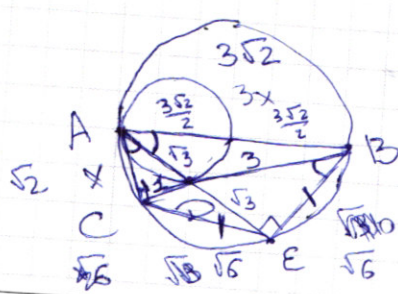 3√2
3√2/2
3x
3√2/2
A
√3
3
B
√2
x
1
D
√3
C
E
√6
√6
√6